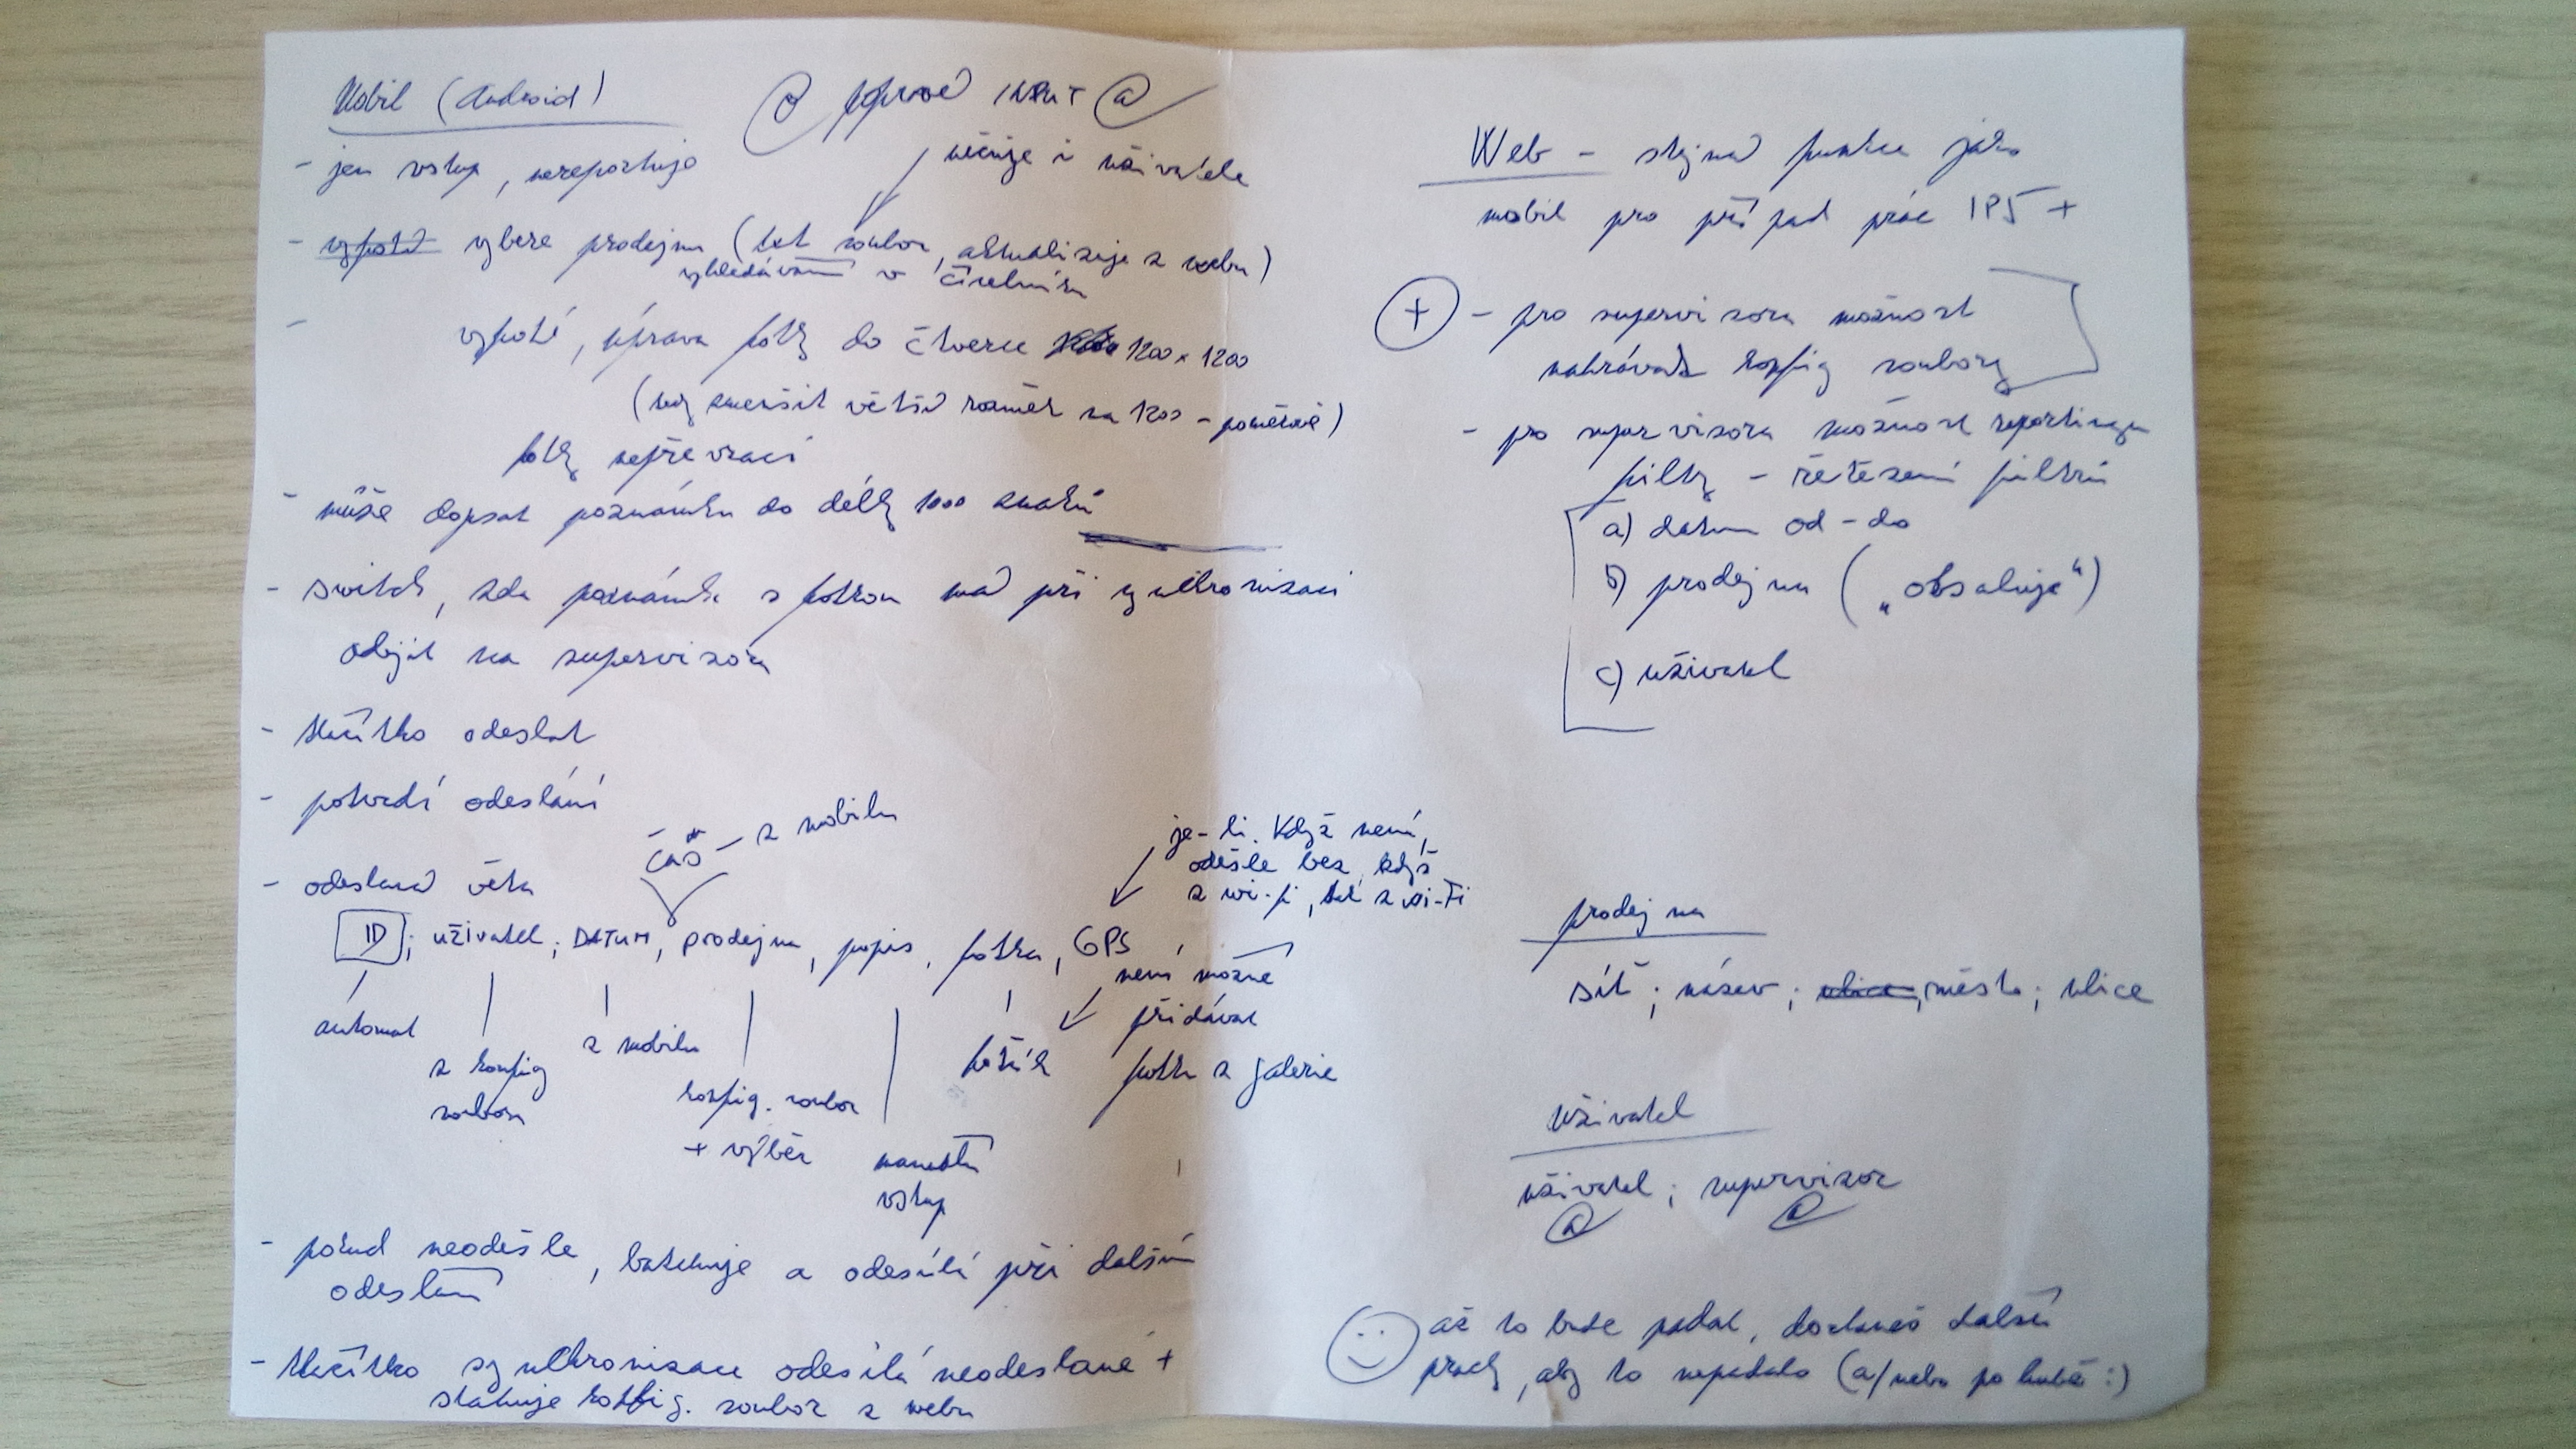 Mobil (Android)
poprvé INPUT @
určuje i uživatele
- jen vstup, nereportuje
- vyfotí vybere prodejnu (txt soubor, aktualizuje z webu)
vyhledávání v číselníku
- vyfotí, úprava fotky do čtverce 1200 x 1200
(tzn zmenšit větší rozměr na 1200 - poměrově)
fotky nepřevrací
- může dopsat poznámku do délky 1000 znaků
- switch, zda poznámka s fotkou má při synchronizaci
odejít na supervizora
- tlačítko odeslat
- potvrdí odeslání
čas - z mobilu
je-li. Když není,
odešle bez, když
z wi-fi, tak z wi-fi
- odeslaná věta
ID; uživatel; DATUM, prodejna, popis, fotka, GPS
není možné
přidávat
fotku z galerie
automat
z konfig
souboru
z mobilu
konfig. soubor
+ výběr
vstup
foťák
- pokud neodešle, batchuje a odesílá při dalším
odeslání
- tlačítko synchronizace odesílá neodeslané +
stahuje konfig. soubor z webu
Web - stejná funkce jako
mobil pro případ práce IPS +
+ - pro supervizora možnost
nahrávat konfig soubory
- pro supervizora možnost reportingu
filtry - řetězení filtrů
a) datum od - do
b) prodejna („obsahuje“)
c) uživatel
prodejna
síť; název; ulice, město; ulice
Uživatel
uživatel; supervizor
@ @
až to bude padat, dostaneš další
prachy, aby to nepadalo (a/nebo po hubě :)